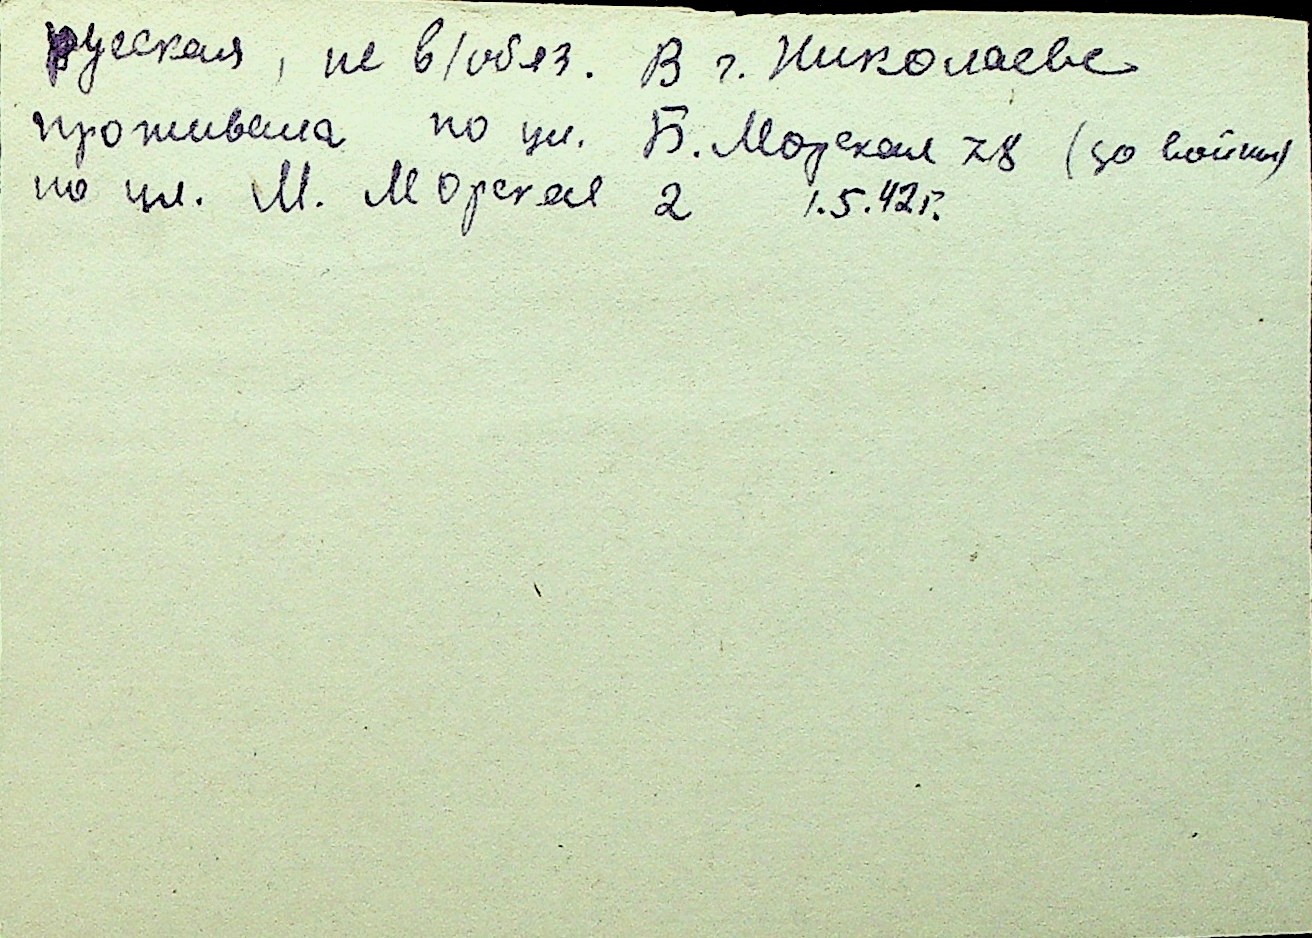 русская, не в/обяз. В г. Николаеве
проживала по ул. Б. Морская 78 (до войны)
по ул. М. Морская 2 1.5.42г.